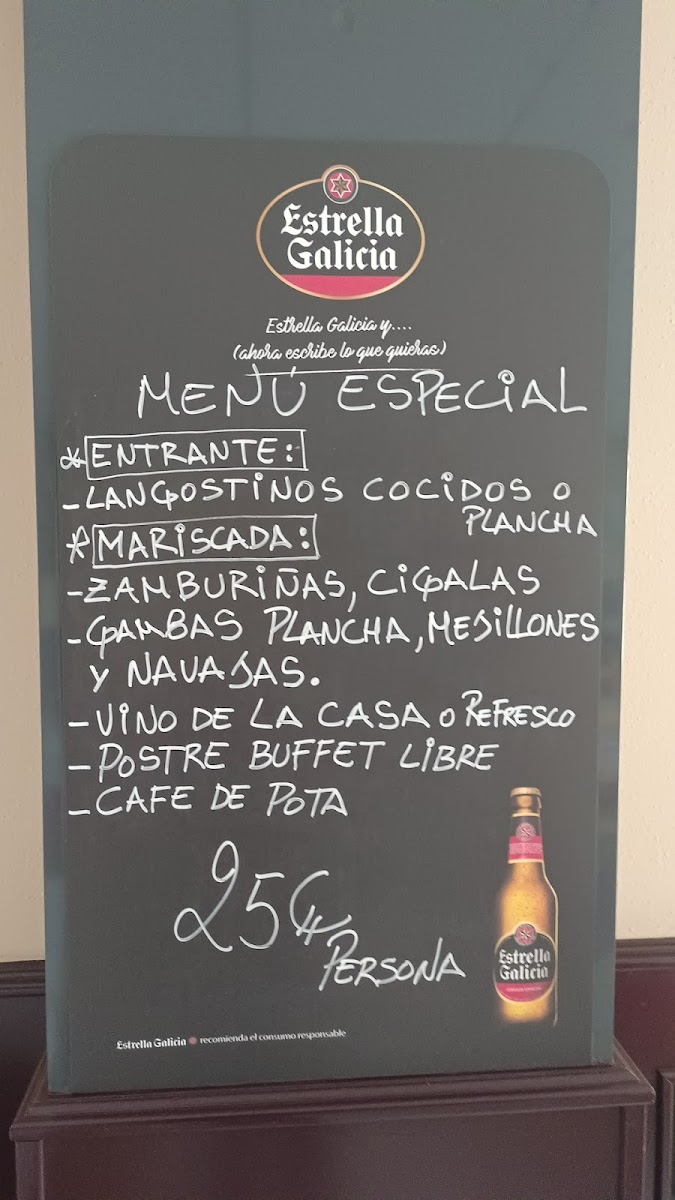 Estrella
Galicia
Estrella Galicia y....
(ahora escribe lo que quieras)
MENÚ ESPECIAL
* ENTRANTE:
- LANGOSTINOS COCIDOS O
PLANCHA
* MARISCADA:
- ZAMBURIÑAS, CIGALAS
- GAMBAS PLANCHA, MEJILLONES
Y NAVAJAS.
- VINO DE LA CASA O REFRESCO
- POSTRE BUFFET LIBRE
- CAFE DE POTA
25 €
PERSONA
Estrella
Galicia
Estrella Galicia recomienda el consumo responsable